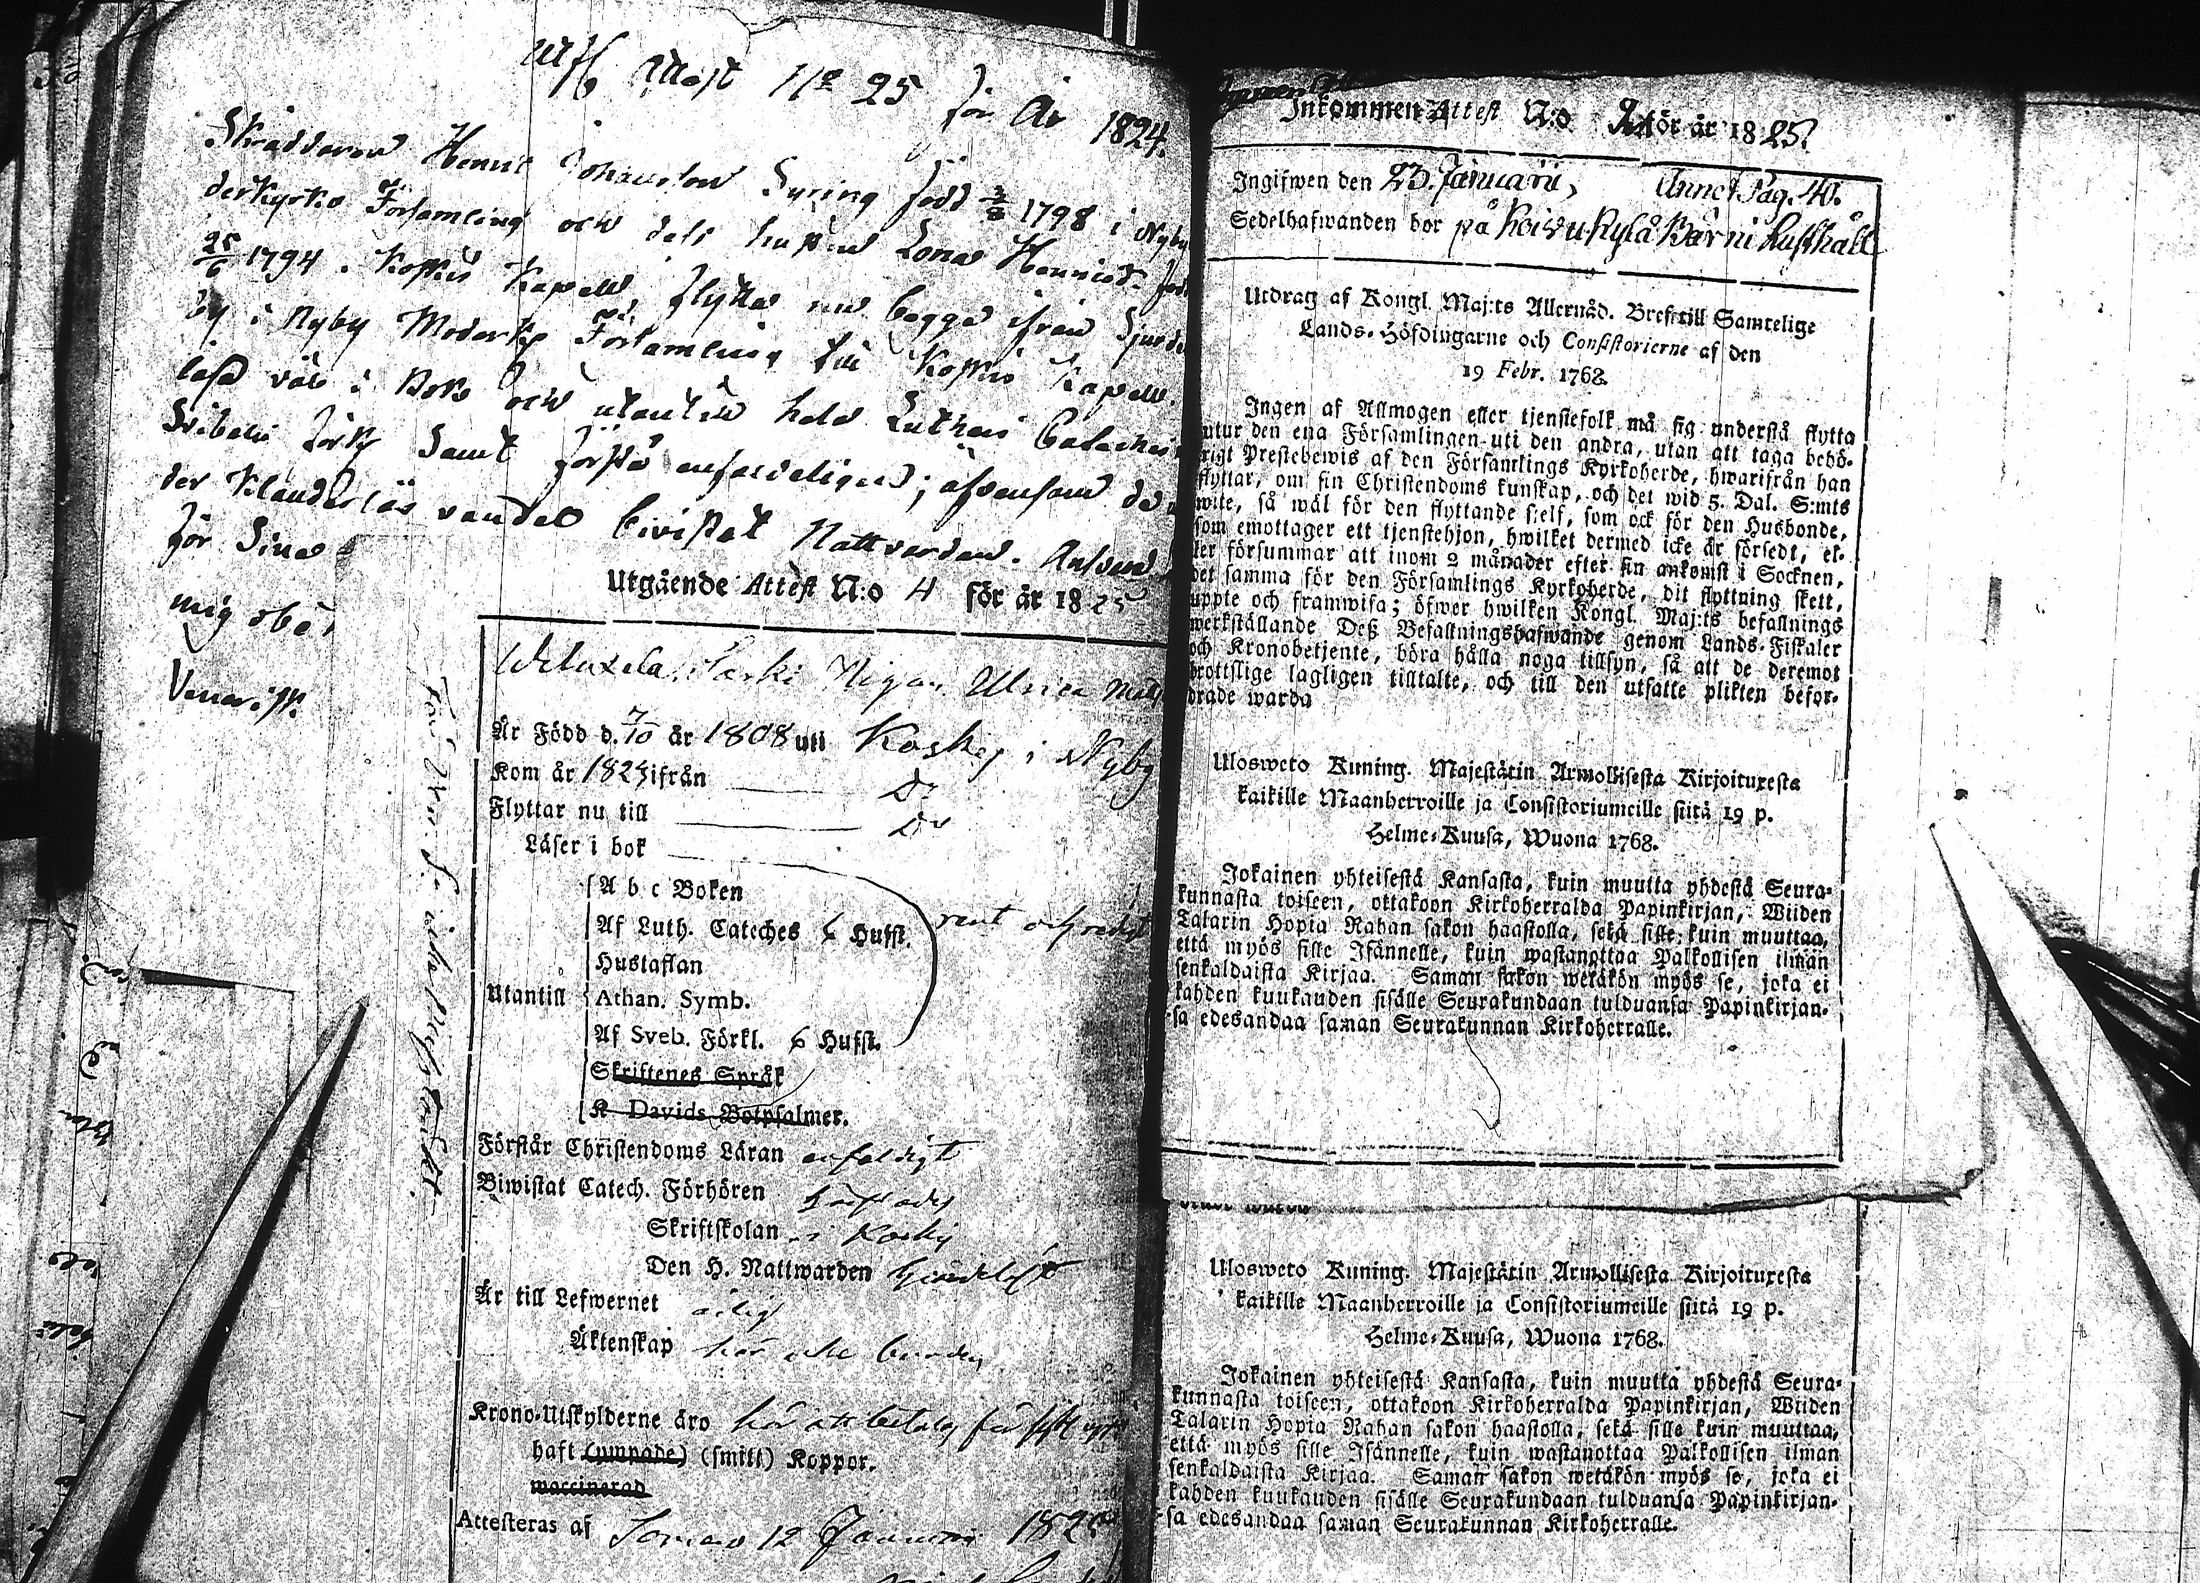 Attest No 25 för År 1824.
Skräddaren Henric Johansson Syring född 3/8 1798 i Nyby
derkyrko Församling och dess hustru Lona Henricsd. föd
25/6 1794 i Koskis Kapell, flytta nu begge ifrån
by i Nyby Moderk. Församling till Koskis Kapell.
läsa väl i Bok och utantill hela Lutheri Cateches
Svebelii förkl. samt förstå enfaldeligen; äfvensom de
der klanderlös vandel bivistat Nattvarden.
för sina
mig
Utgående Attest N:o 4 för år 1825
Pigan Ulrica
Är Född d. 7/10 år 1808 uti Koskis i Nyby
Kom år 1824 ifrån Do
Flyttar nu till Do
Läser i bok
A b c Boken
Af Luth. Cateches 6 Hufst.
Hustaflan
Utantill Athan. Symb.
Af Sveb. Förkl. 6 Hufst.
Skriftenes Språk
K Davids Botpsalmer.
Förstår Christendoms Läran enfaldigt
Biwistat Catech. Förhören
Skriftskolan i Koskis
Den H. Nattwarden
Är till Lefwernet ärlig
Äktenskap
Krono-Utskylderne äro har att betala för
haft (ympade) (smitt) Koppor.
waccinerad
Attesteras af Somero 12 Januari 1825
Inkommen Attest N:o för år 1825.
Ingifwen den 23. Januarii, Annot. Pag. 40.
Sedelhafwanden bor på Koivukylä Bärni Rusthåll
Utdrag af Kongl. Maj:ts Allernåd. Bref till Samtelige
Lands-Höfdingarne och Consistorierne af den
19 Febr. 1768.
Ingen af Allmogen eller tjenstefolk må sig understå flytta
utur den ena Församlingen uti den andra, utan att taga behö-
rigt Prestebewis af den Församlings Kyrkoherde, hwarifrån han
flyttar, om sin Christendoms kunskap, och det wid 5. Dal. S:mts
wite, så wäl för den flyttande sielf, som ock för den Husbonde,
som emottager ett tjenstehjon, hwilket dermed icke är försedt, el-
ler försummar att inom 2 månader efter sin ankomst i Socknen,
det samma för den Församlings Kyrkoherde, dit flyttning skett,
uppte och framwisa; öfwer hwilken Kongl. Maj:ts befallnings
werkställande Deß Befallningshafwande genom Lands-Fiskaler
och Kronobetjente, böra hålla noga tillsyn, så att de deremot
brottslige lagligen tilltalte, och till den utsatte plikten befor-
drade warda
Uloswеto Kuning. Majestätin Armollisesta Kirjoituxesta
kaikille Maanherroille ja Consistoriumeille siitä 19 p.
Helme-Kuusa, Wuona 1768.
Jokainen yhteisestä Kansasta, kuin muutta yhdestä Seura-
kunnasta toiseen, ottakoon Kirkoherralda Papinkirjan, Wiiden
Talarin Hopia Rahan sakon haastolla, sekä sille, kuin muuttaa,
että myös sille Isännelle, kuin wastanottaa Palkollisen ilman
senkaldaista Kirjaa. Saman sakon wetäkön myös se, joka ei
kahden kuukauden sisälle Seurakundaan tulduansa Papinkirjan-
sa edesandaa saman Seurakunnan Kirkoherralle.
Uloswеto Kuning. Majestätin Armollisesta Kirjoituxesta
kaikille Maanherroille ja Consistoriumeille siitä 19 p.
Helme-Kuusa, Wuona 1768.
Jokainen yhteisestä Kansasta, kuin muutta yhdestä Seura-
kunnasta toiseen, ottakoon Kirkoherralda Papinkirjan, Wiiden
Talarin Hopia Rahan sakon haastolla, sekä sille kuin muuttaa,
että myös sille Isännelle, kuin wastanottaa Palkollisen ilman
senkaldaista Kirjaa. Saman sakon wetäkön myös se, joka ei
kahden kuukauden sisälle Seurakundaan tulduansa Papinkirjan-
sa edesandaa saman Seurakunnan Kirkoherralle.